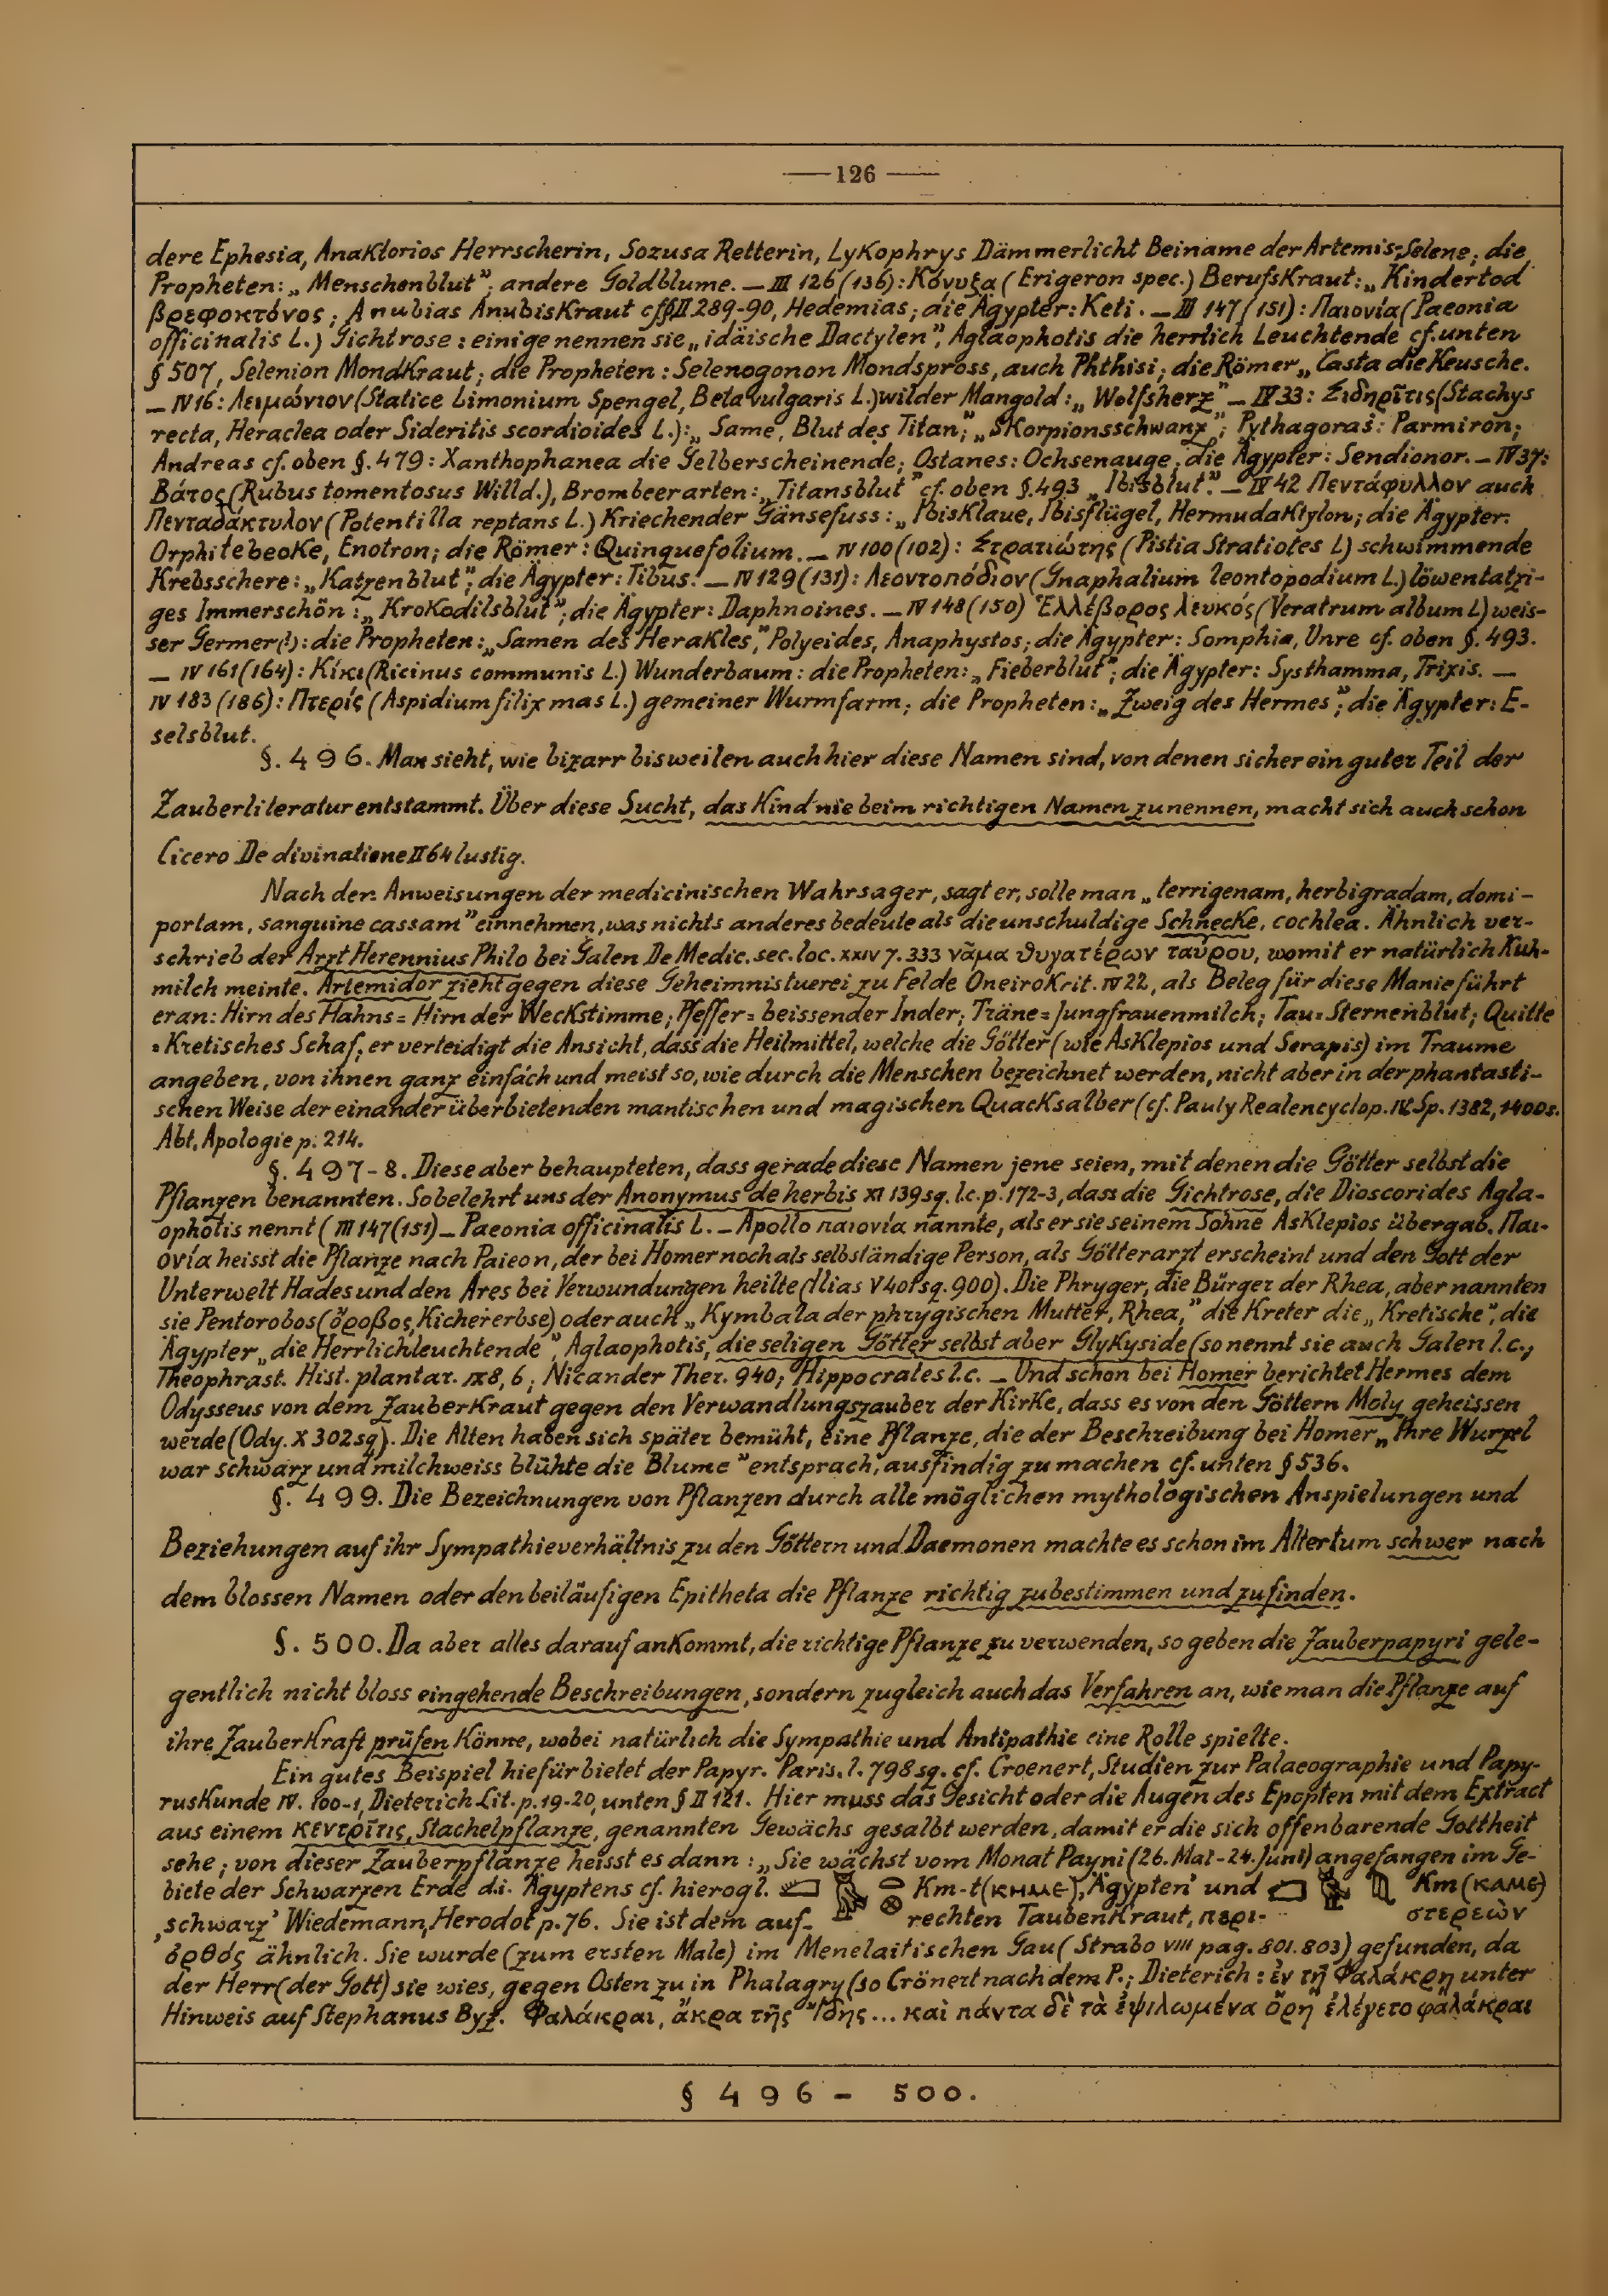 —126—
dere Ephesia, Anaktorios Herrscherin, Sozusa Retterin, Lykophrys Dämmerlicht Beiname der Artemis-Selene; die
Propheten: „Menschenblut”; andere Goldblume. — III 126 (136): Κόνυξα (Erigeron spec.) Berufskraut: „Kindertod
βρεφοκτόνος; Anubias Anubiskraut cf. § II 289-90, Hedemias; die Ägypter: Keti. — III 147 (151): Παιονία (Paeonia
officinalis L.) Gichtrose: einige nennen sie „idäische Dactylen”, Aglaophotis die herrlich Leuchtende cf. unten
§ 507, Selenion Mondkraut; die Propheten: Selenogonon Mondspross, auch Phthisi; die Römer „Casta die Keusche.
— IV 16: Λειμώνιον (Statice Limonium Spengel, Beta vulgaris L.) wilder Mangold: „Wolfsherz” — IV 33: Σιδηρῖτις (Stachys
recta, Heraclea oder Sideritis scordioides L.): „Same, Blut des Titan;” „Skorpionsschwanz”; Pythagoras: Parmiron;
Andreas cf. oben §. 479: Xanthophanea die Gelberscheinende; Ostanes: Ochsenauge; die Ägypter: Sendionor. — IV 37:
Βάτος (Rubus tomentosus Willd.), Brombeerarten: „Titansblut” cf. oben §. 493 „Ibisblut”. — IV 42 Πεντάφυλλον auch
Πενταδάκτυλον (Potentilla reptans L.) Kriechender Gänsefuss: „Ibisklaue, Ibisflügel, Hermudaktylon; die Ägypter:
Orphitebeoke, Enotron; die Römer: Quinquefolium. — IV 100 (102): Στρατιώτης (Pistia Stratiotes L) schwimmende
Krebsschere: „Katzenblut”; die Ägypter: Tibus. — IV 129 (131): Λεοντοπόδιον (Gnaphalium leontopodium L.) löwentatzi-
ges Immerschön: „Krokodilsblut”; die Ägypter: Daphnoines. — IV 148 (150) Ἑλλέβορος λευκός (Veratrum album L) weis-
ser Germer(!): die Propheten: „Samen des Herakles,” Polyeides, Anaphystos; die Ägypter: Somphia, Unre cf. oben §. 493.
— IV 161 (164): Κίκι (Ricinus communis L.) Wunderbaum: die Propheten: „Fieberblut”; die Ägypter: Systhamma, Trixis. —
IV 183 (186): Πτερίς (Aspidium filix mas L.) gemeiner Wurmfarm; die Propheten: „Zweig des Hermes”; die Ägypter: E-
selsblut.
§. 496. Man sieht, wie bizarr bisweilen auch hier diese Namen sind, von denen sicher ein guter Teil der
Zauberliteratur entstammt. Über diese Sucht, das Kind nie beim richtigen Namen zu nennen, macht sich auch schon
Cicero De divinatione II 64 lustig.
Nach den Anweisungen der medicinischen Wahrsager, sagt er, solle man „terrigenam, herbigradam, domi-
portam, sanguine cassam” einnehmen, was nichts anderes bedeute als die unschuldige Schnecke, cochlea. Ähnlich ver-
schrieb der Arzt Herennius Philo bei Galen De Medic. sec. loc. XXIV 7. 333 νᾶμα θυγατέρων ταύρου, womit er natürlich Kuh-
milch meinte. Artemidor zieht gegen diese Geheimnistuerei zu Felde Oneirokrit. IV 22, als Beleg für diese Manie führt
er an: Hirn des Hahns = Hirn der Weckstimme; Pfeffer = beissender Inder; Träne = Jungfrauenmilch; Tau = Sternenblut; Quitte
= Kretisches Schaf; er verteidigt die Ansicht, dass die Heilmittel, welche die Götter (wie Asklepios und Serapis) im Traume
angeben, von ihnen ganz einfach und meist so, wie durch die Menschen bezeichnet werden, nicht aber in der phantasti-
schen Weise der einander überbietenden mantischen und magischen Quacksalber (cf. Pauly Realencyclop. IV. Sp. 1382, 1400s.
Abt, Apologie p. 214.
§. 497-8. Diese aber behaupteten, dass gerade diese Namen jene seien, mit denen die Götter selbst die
Pflanzen benannten. So belehrt uns der Anonymus de herbis XI 139 sq. l.c. p. 172-3, dass die Gichtrose, die Dioscorides Agla-
ophotis nennt (III 147 (151) — Paeonia officinalis L. — Apollo παιονία nannte, als er sie seinem Sohne Asklepios übergab. Παι-
ονία heisst die Pflanze nach Paieon, der bei Homer noch als selbständige Person, als Götterarzt erscheint und den Gott der
Unterwelt Hades und den Ares bei Verwundungen heilte (Ilias V 401 sq. 900). Die Phryger, die Bürger der Rhea, aber nannten
sie Pentorobos (ὄροβος, Kichererbse) oder auch „Kymbala der phrygischen Mutter, Rhea,” die Kreter die „Kretische”, die
Ägypter „die Herrlichleuchtende”, Aglaophotis, die seligen Götter selbst aber Glykyside (so nennt sie auch Galen l.c.;
Theophrast. Hist. plantar. IX 8, 6; Nicander Ther. 940; Hippocrates l.c. — Und schon bei Homer berichtet Hermes dem
Odysseus von dem Zauberkraut gegen den Verwandlungszauber der Kirke, dass es von den Göttern Moly geheissen
werde (Ody. X 302 sq). Die Alten haben sich später bemüht, eine Pflanze, die der Beschreibung bei Homer „Ihre Wurzel
war schwarz und milchweiss blühte die Blume” entsprach, ausfindig zu machen cf. unten § 536.
§. 499. Die Bezeichnungen von Pflanzen durch alle möglichen mythologischen Anspielungen und
Beziehungen auf ihr Sympathieverhältnis zu den Göttern und Daemonen machte es schon im Altertum schwer nach
dem blossen Namen oder den beiläufigen Epitheta die Pflanze richtig zu bestimmen und zu finden.
§. 500. Da aber alles darauf ankommt, die richtige Pflanze zu verwenden, so geben die Zauberpapyri gele-
gentlich nicht bloss eingehende Beschreibungen, sondern zugleich auch das Verfahren an, wie man die Pflanze auf
ihre Zauberkraft prüfen könne, wobei natürlich die Sympathie und Antipathie eine Rolle spielte.
Ein gutes Beispiel hiefür bietet der Papyr. Paris. l. 798 sq. cf. Croenert, Studien zur Palaeographie und Papy-
ruskunde IV. 100-1, Dieterich Lit. p. 19-20, unten § II 121. Hier muss das Gesicht oder die Augen des Epopten mit dem Extract
aus einem κεντρῖτις, Stachelpflanze, genannten Gewächs gesalbt werden, damit er die sich offenbarende Gottheit
sehe; von dieser Zauberpflanze heisst es dann: „Sie wächst vom Monat Payni (26. Mai - 24. Juni) angefangen im Ge-
biete der Schwarzen Erde d.i. Ägyptens cf. hierogl. Km-t (ⲕⲏⲙⲉ), ‚Ägypten’ und Km (ⲕⲁⲙⲉ)
‚schwarz’ Wiedemann, Herodot p. 76. Sie ist dem auf- rechten Taubenkraut, περι- στερεὼν
ὀρθός ähnlich. Sie wurde (zum ersten Male) im Menelaitischen Gau (Strabo VIII pag. 801. 803) gefunden, da
der Herr (der Gott) sie wies, gegen Osten zu in Phalagry (so Crönert nach dem P.; Dieterich: ἐν τῇ Φαλάκρῃ unter
Hinweis auf Stephanus Byz. Φαλάκραι, ἄκρα τῆς Ἴδης ... καὶ πάντα δὲ τὰ ἐψιλωμένα ὄρη ἐλέγετο φαλάκραι
§ 496 - 500.